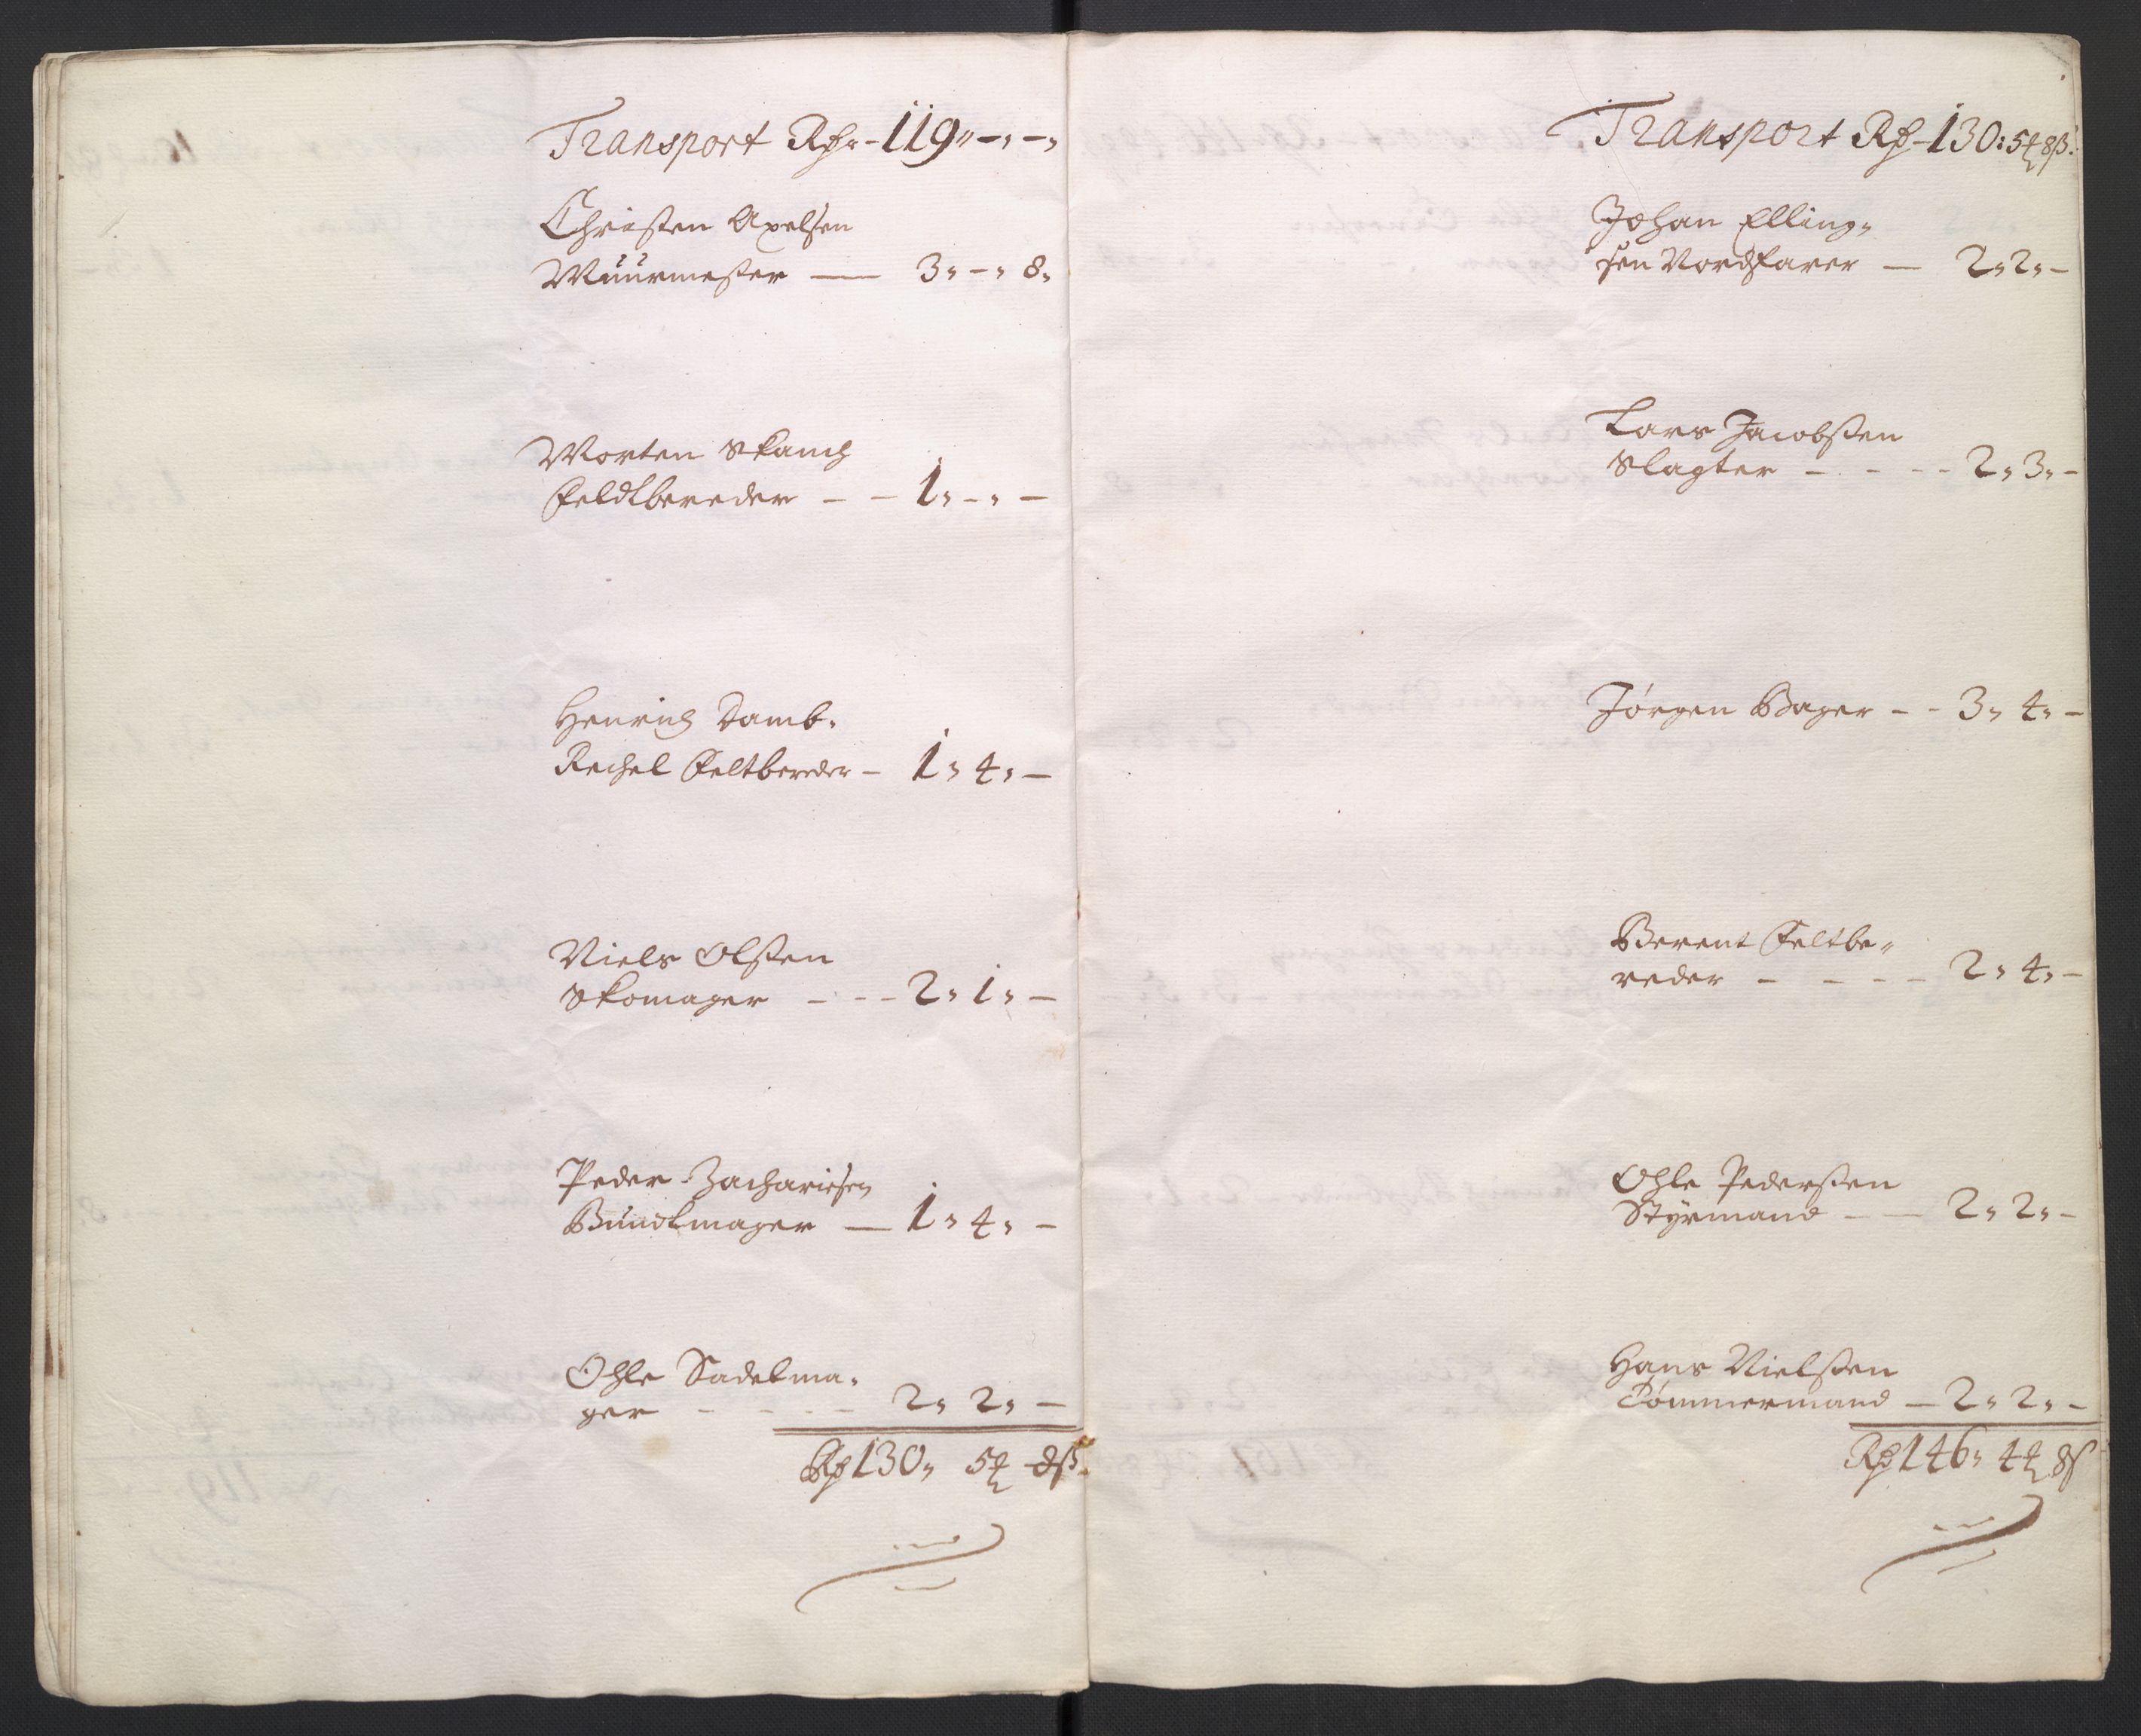 Transport Rdr - 119 " - " - "
Christen Axelsen
Muurmester — 3 " - " 8 "
Morten Skanch
Feldtbereder - - 1 " - " -
Henrich Damb"
Rechel Feltbereder - 1 " 4 " -
Niels Olssen
Skomager - - - 2 " 1 " -
Peder Zachariesen
Bundtmager — 1 " 4 " -
Ohle Sadelma"
ger - - - - 2 " 2 " -
Rd 130 " 5 ꝉ 8 ß
Transport Rd - 130 : 5 ꝉ 8 ß
Johan Elling"
sen Nordfarer — 2 " 2 " -
Lars Jacobssen
Slagter - - - - 2 " 3 " -
Jørgen Bager - - 3 " 4 " -
Berent Feltbe"
reder - - - - 2 " 4 " -
Ohle Pederssen
Styrmand - - 2 " 2 " -
Hans Nielssen
Tømmermand — 2 " 2 " -
Rd 146 " 4 ꝉ 8 ß